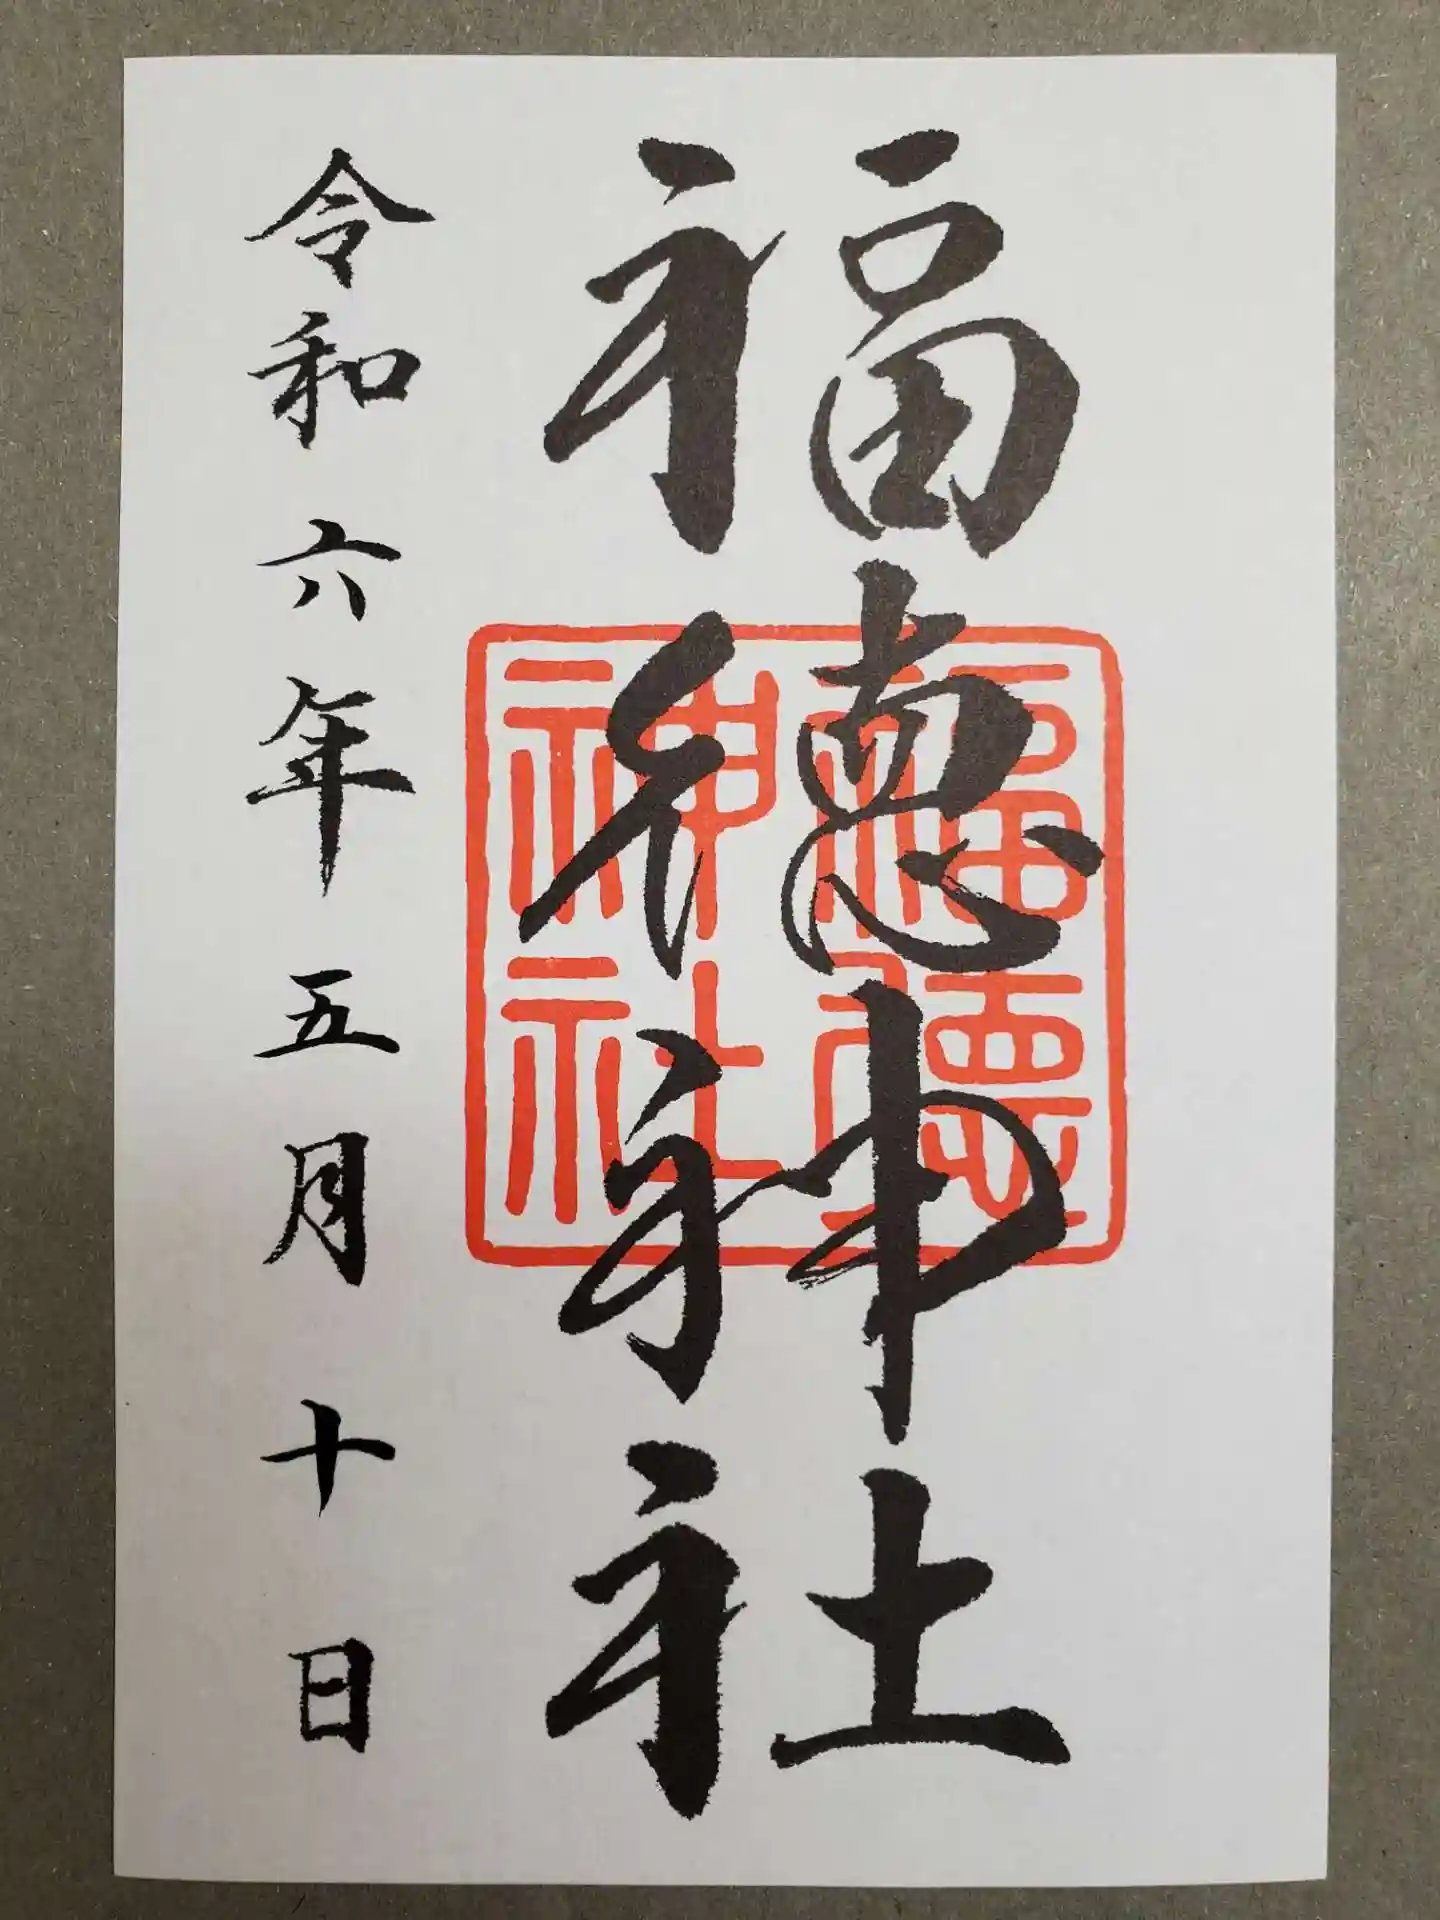 福徳神社
福德
神社
令和六年五月十日